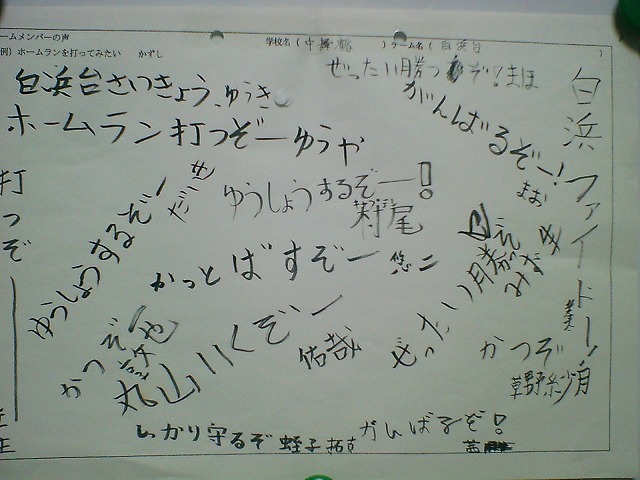 ームメンバーの声
例）ホームランを打ってみたい　かずし
学校名（
）チーム名（白浜台
）
白浜台さいきょう、ゆうき
ぜったい勝つぞ！まほ
ホームラン打つぞーゆうや
がんばるぞー！
まお
白浜ファイトー！
打つぞー
ゆうしょうするぞー！
村尾
ゆうしょうするぞ！
だい
かっとばすぞー
悠二
ぜったい勝つぞ
みずき
かつぞ
丸山
いくぞー
佑哉
かつぞ
草野紗
しっかり守るぞ 蛭子 拓
がんばるぞ！